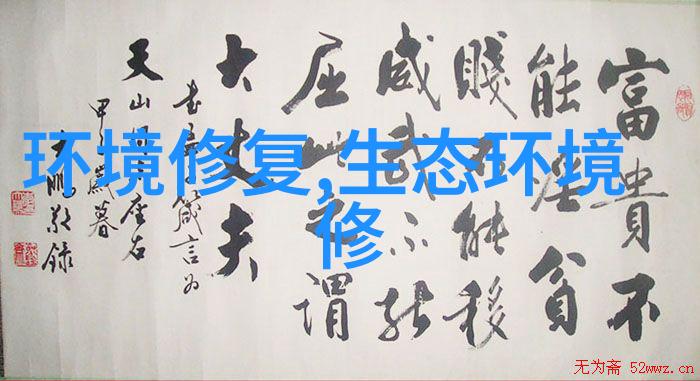 富貴不
能淫貧
賤不能移
威武不能
屈此之謂
大丈夫
箴言为
天山座右
甲歲暮
录
环境修复,生态环境
修
无为斋 52wwz.cn